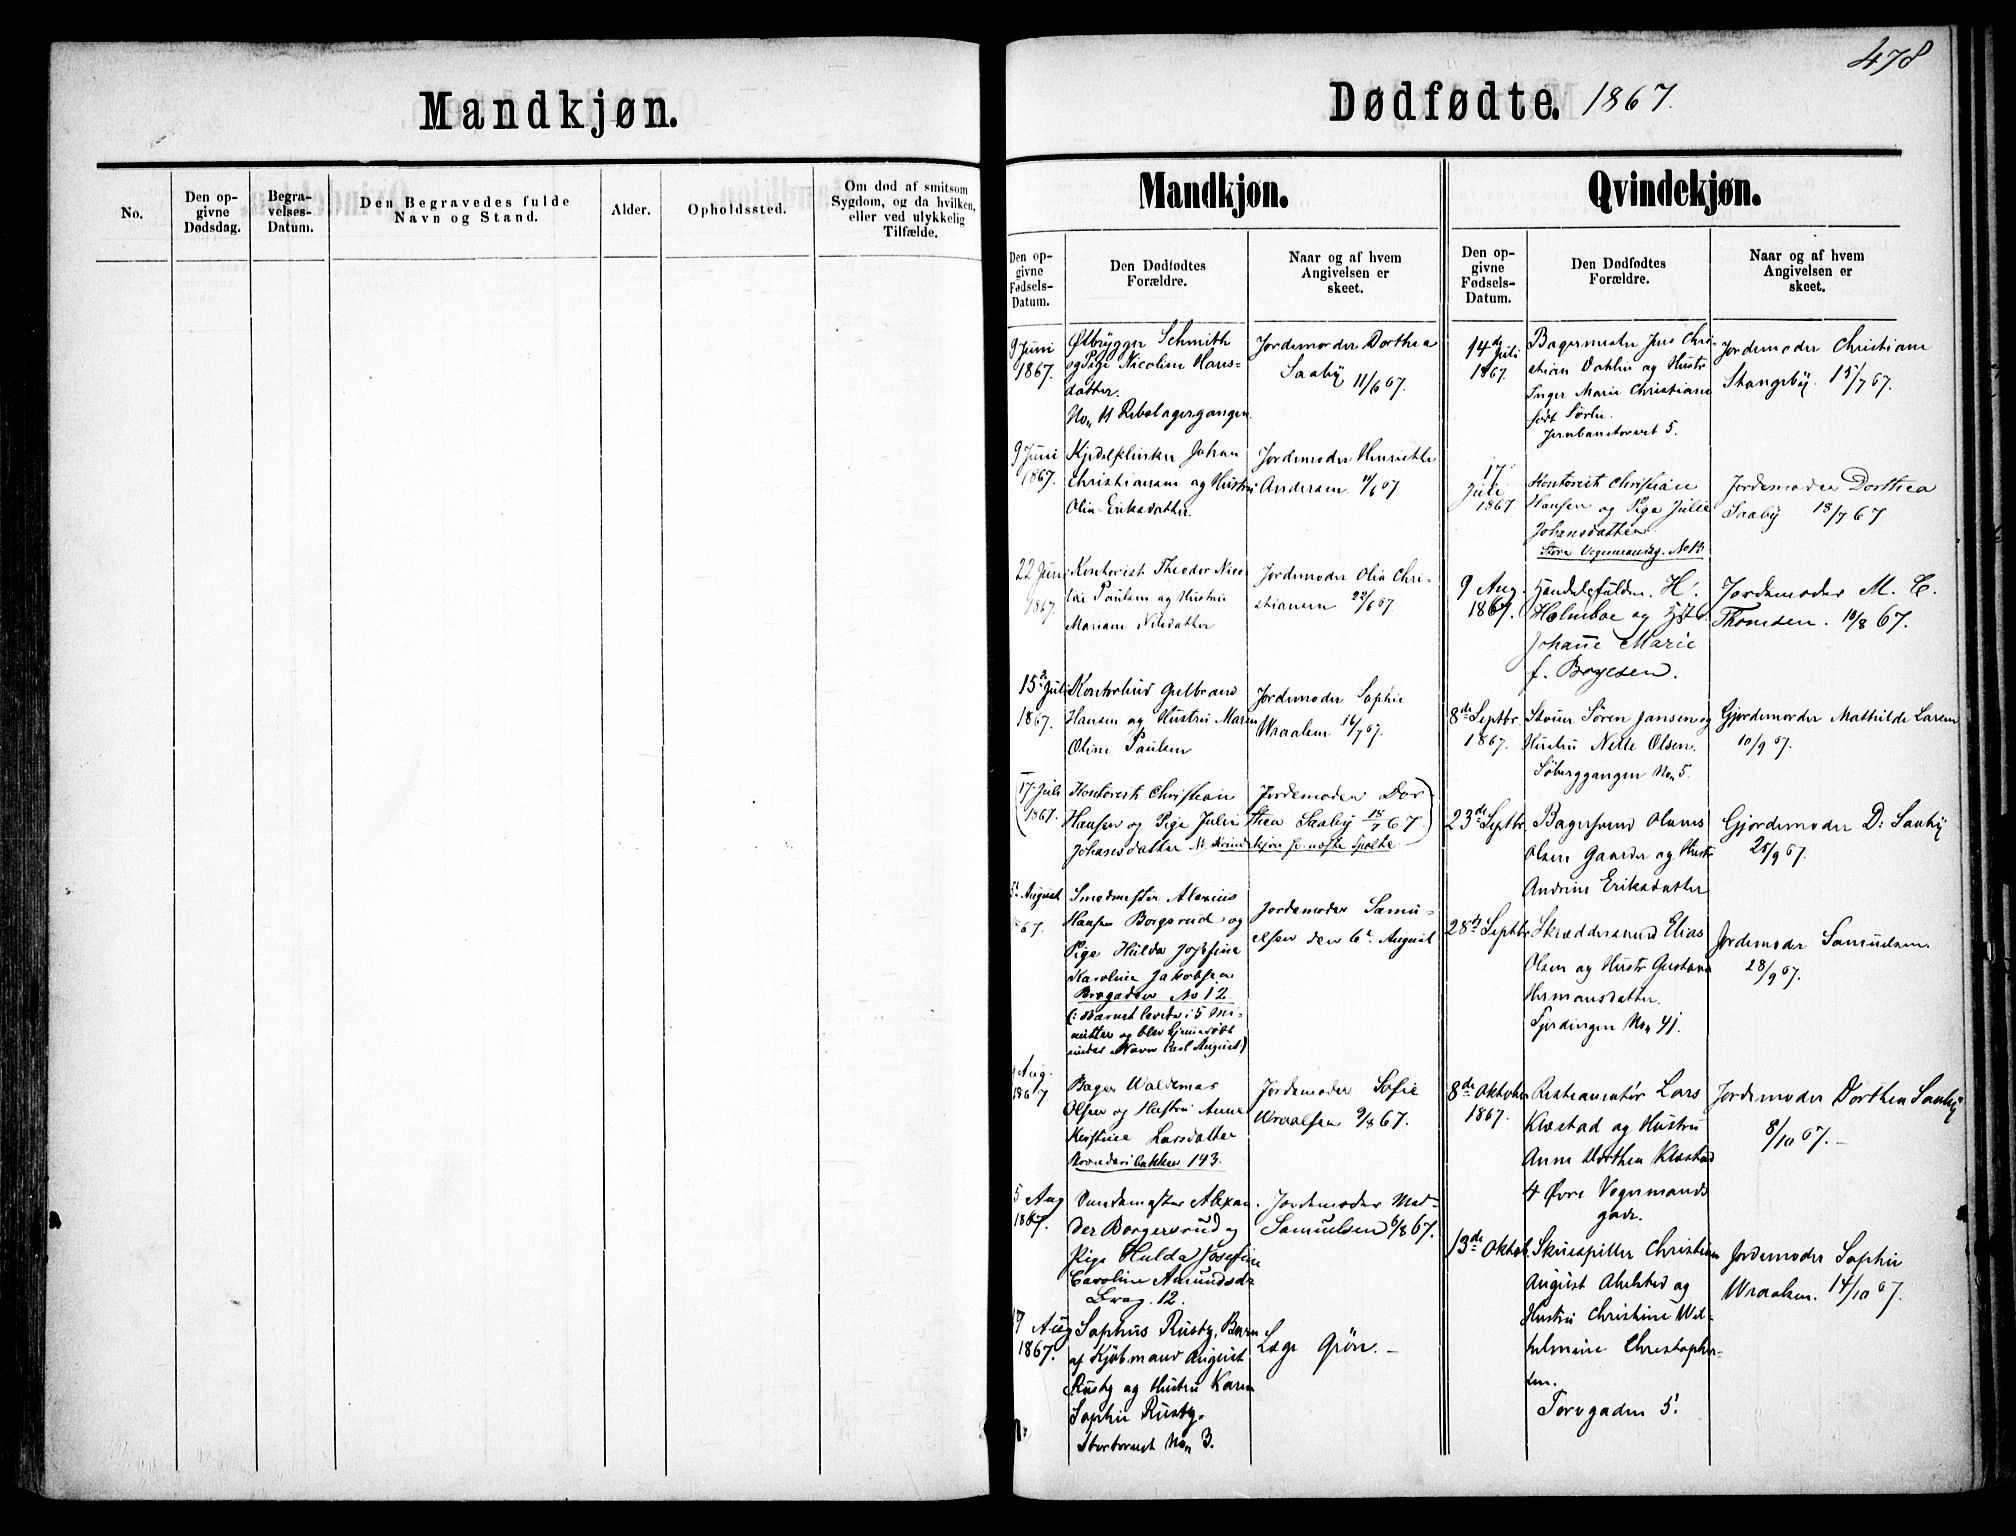 Mandkjøn.
No.
Den op-
givne
Dødsdag.
Begra-
velses-
Datum.
Den Begravedes fulde
Navn og Stand.
Alder.
Opholdssted.
Om død af smitsom
Sygdom, og da hvilken,
eller ved ulykkelig
Tilfælde.
478
Dødfødte. 1867.
Mandkjøn.
Den op-
givne
Fødsels-
Datum.
Den Dødfødtes
Forældre.
Naar og af hvem
Angivelsen er
skeet.
9 Juni
1867.
Ølbrygger Schmith
og Pige Nicoline Hans-
datter.
Non 11 Rebslagergangen
Jordemoder Dorthea
Saaby 11/6 67.
9 Juni
1867.
Johan
Christiansen og Hustru
Olia Eriksdatter.
Jordemoder Henriette
Andersen 11/6 67
22 Juni
1867.
Kontorist Theodor Nico-
lai Paulsen og Hustru
Mariane Nilsdatter
Jordemoder Olia Chri-
stiansen 22/6 67.
15de Juli
1867.
Kontorbud Gulbrand
Hansen og Hustru Maren
Oline Paulsen
Jordemoder Sophie
Wraalsen 16/7 67.
17 Juli
(1867.
Kontorist Christian
Hansen og Pige Julie
Johansdatter N: Kvinde
Jordemoder Dor-
thea Saaby 18/7 67.)
kjøn se næste Spalte.
5te August
1867.
Smedmester Alexius
Hansen Borgsrud og
Pige Hulda Josefine
Karoline Jakobsen
Brogaden No 12
(: Barnet levede i 5 Mi-
nutter og blev hjemmedøbt
under Navn Carl August)
Jordemoder Samu-
elsen den 6te August
Aug.
1867
Bager Waldemar
Olsen og Hustru Anne
Kirstine Larsdatter
143.
Jordemoder Sofie
Wraalsen 9/8 67.
5 Aug
1867.
Alexan
der Borgersrud og
Pige Hulda Josefine
Caroline Amundsdr
Brog. 12.
Jordemoder Mad-
Samuelsen 6/8 67.
Aug
1867.
Sophus Rusty, Barn
af Kjøbmand August
Rusty og Hustru Karen
Sophie Rusty.
Stortorvet Non 3.
Læge Grøn. —
Qvindekjøn.
Den op-
givne
Fødsels-
Datum.
Den Dødfødtes
Forældre.
Naar og af hvem
Angivelsen er
skeet.
14de
Juli
1867.
Bagermester Jens Chri-
stian Dahlin og Hustr
Inger Marie Christiane
født Sørlie.
Jernbanetorvet 5.
Jordemoder Christiane
Stangeby. 15/7 67.
17
Juli
1867
Kontorist Christian
Hansen og Pige Julie
Johansdatter.
Store Vognmandsg. No 13
Jordemoder Dorthea
Saaby 18/7 67
9 Aug.
1867.
Handelsfuldm. H.
Holmboe og Hustr
Johanne Marie
f. Boyesen.
Jordemoder M. C.
Thomsen. 10/8 67.
8de Septbr
1867.
Stuer Søren Jansen og
Hustru Nelle Olsen.
Søberggangen Non 5.
Gjordemoder Mathilde Larsen
10/9 67.
23de Septbr
Bagersvend Olaus
Olsen Gaarder og Hustr
Andrine Eriksdatter
Gjordemoder D: Saaby
25/9 67.
28de Septbr
Skræddersvend Elias
Olsen og Hustr Gustava
Hermansdatter.
Fjerdingen Non 41.
Jordemoder Samuelsen.
28/9 67.
8de Oktober
1867.
Restauratør Lars
Klæstad og Hustru
Anne Dorthea Klæstad
4 Øvre Vognmands
gade.
Jordemoder Dorthea Saaby
8/10 67. —
13de Oktob.
Skuespiller Christian
August Ahlsted og
Hustru Christine Wil-
helmine Christopher-
sen.
Torvgaden 5.
Jordemoder Sophie
Wraalsen. 14/10 67.